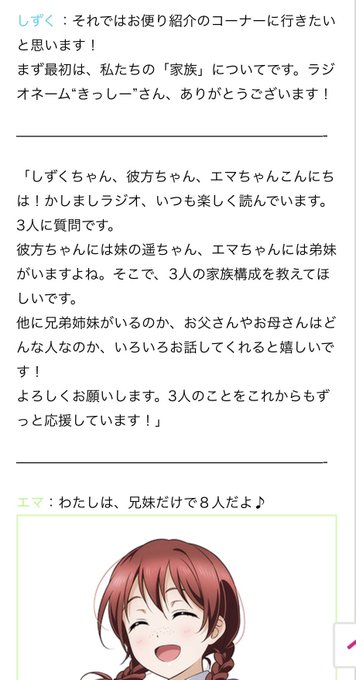 しずく：それではお便り紹介のコーナーに行きたい
と思います！
まず最初は、私たちの「家族」についてです。ラジ
オネーム“きっしー”さん、ありがとうございます！
「しずくちゃん、彼方ちゃん、エマちゃんこんにち
は！かしましラジオ、いつも楽しく読んでいます。
3人に質問です。
彼方ちゃんには妹の遥ちゃん、エマちゃんには弟妹
がいますよね。そこで、3人の家族構成を教えてほ
しいです。
他に兄弟姉妹がいるのか、お父さんやお母さんはど
んな人なのか、いろいろお話してくれると嬉しいで
す！
よろしくお願いします。3人のことをこれからもず
っと応援しています！」
エマ：わたしは、兄妹だけで８人だよ♪